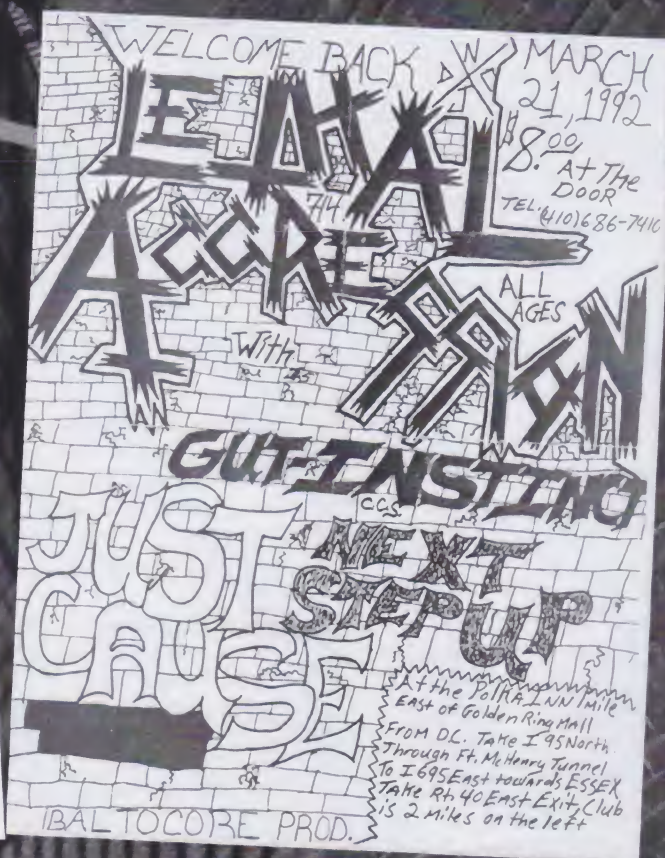 WELCOME BACK
MARCH
21, 1992
$8.00
At The
DOOR
TEL. (410) 686-7416
LETHAL
AGGRESSION
714
ALL
AGES
With
GUT-INSTINCT
C.C.S.
JUST
CAUSE
NEXT
STEP
UP
At the PolKA INN 1 Mile
EAST of Golden Ring MAll
From D.C. Take I 95 North
Through Ft. McHenry Tunnel
To I 695 East towards ESSEX
TAKe Rt. 40 East Exit, Club
is 2 Miles on the left
BALTOCORE PROD.